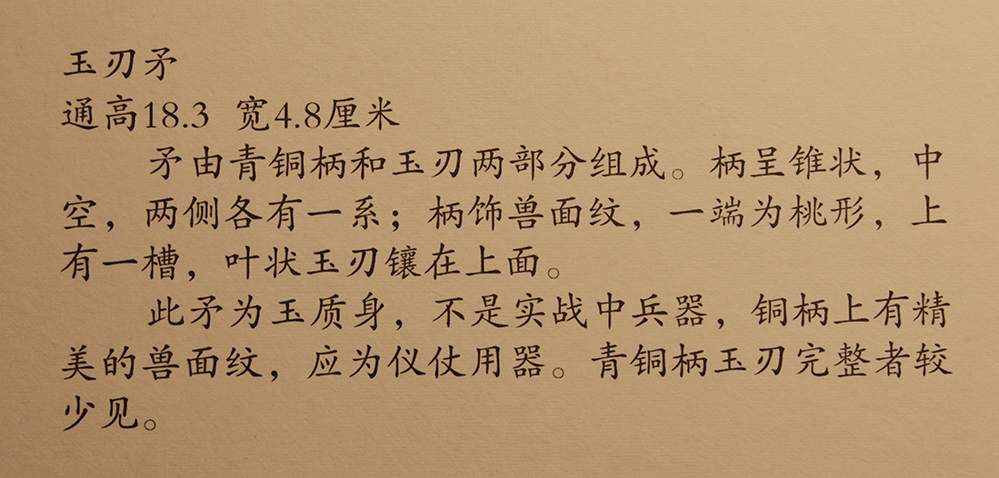 玉刃矛
通高18.3 宽4.8厘米
矛由青铜柄和玉刃两部分组成。柄呈锥状，中
空，两侧各有一系；柄饰兽面纹，一端为桃形，上
有一槽，叶状玉刃镶在上面。
此矛为玉质身，不是实战中兵器，铜柄上有精
美的兽面纹，应为仪仗用器。青铜柄玉刃完整者较
少见。